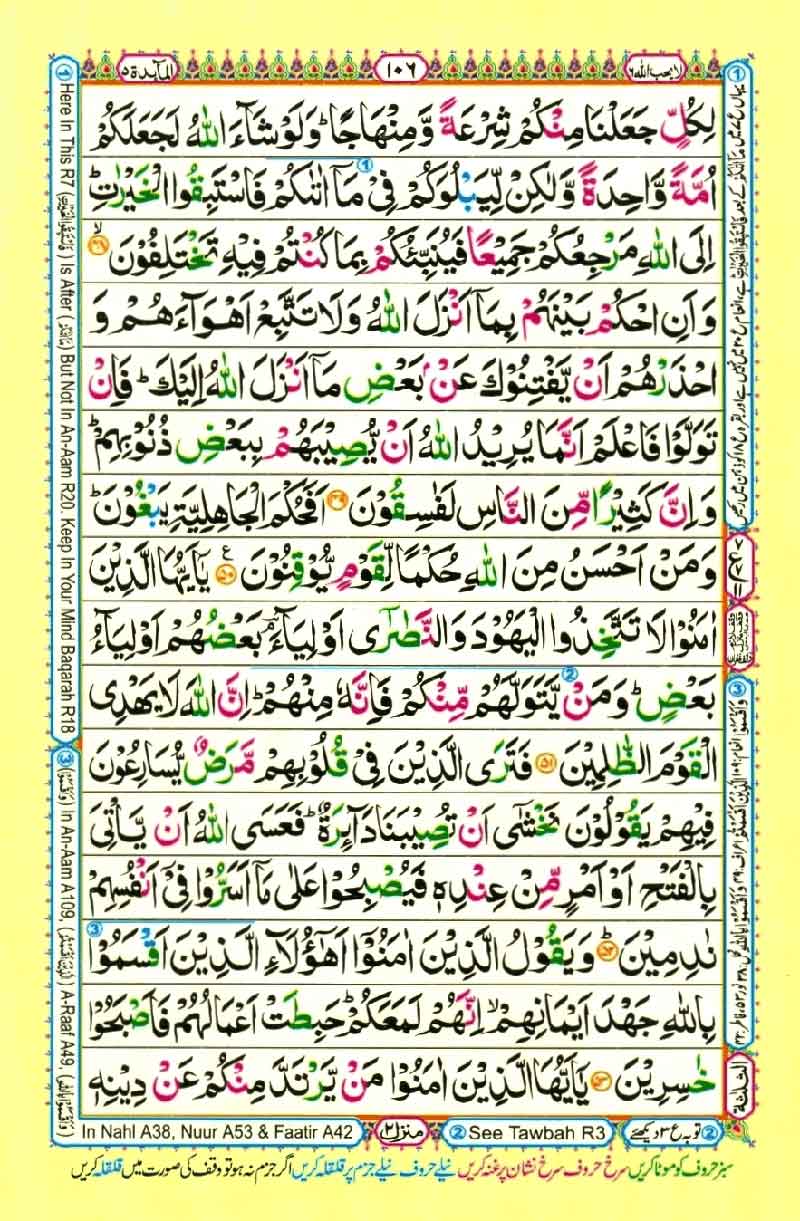 لا يحب الله ٦
١٠٦
المآىدة ٥
لِكُلٍّ جَعَلْنَا مِنْكُمْ شِرْعَةً وَّمِنْهَاجًا ؕ وَلَوْ شَآءَ اللّٰهُ لَجَعَلَكُمْ
اُمَّةً وَّاحِدَةً وَّلٰكِنْ لِّيَبْلُوَكُمْ فِىْ مَاۤ اٰتٰىكُمْ فَاسْتَبِقُوا الْخَيْرٰتِ ؕ
اِلَى اللّٰهِ مَرْجِعُكُمْ جَمِيْعًا فَيُنَبِّئُكُمْ بِمَا كُنْتُمْ فِيْهِ تَخْتَلِفُوْنَ ۙ ﴿۴۸﴾
وَاَنِ احْكُمْ بَيْنَهُمْ بِمَاۤ اَنْزَلَ اللّٰهُ وَلَا تَتَّبِعْ اَهْوَآءَهُمْ وَ
احْذَرْهُمْ اَنْ يَّفْتِنُوْكَ عَنْۢ بَعْضِ مَاۤ اَنْزَلَ اللّٰهُ اِلَيْكَ ؕ فَاِنْ
تَوَلَّوْا فَاعْلَمْ اَنَّمَا يُرِيْدُ اللّٰهُ اَنْ يُّصِيْبَهُمْ بِبَعْضِ ذُنُوْبِهِمْ ؕ
وَاِنَّ كَثِيْرًا مِّنَ النَّاسِ لَفٰسِقُوْنَ ﴿۴۹﴾ اَفَحُكْمَ الْجَاهِلِيَّةِ يَبْغُوْنَ ؕ
وَمَنْ اَحْسَنُ مِنَ اللّٰهِ حُكْمًا لِّقَوْمٍ يُّوْقِنُوْنَ ﴿۵۰﴾ ع يٰۤاَيُّهَا الَّذِيْنَ
اٰمَنُوْا لَا تَتَّخِذُوا الْيَهُوْدَ وَالنَّصٰرٰۤى اَوْلِيَآءَ ۘ بَعْضُهُمْ اَوْلِيَآءُ
بَعْضٍ ؕ وَمَنْ يَّتَوَلَّهُمْ مِّنْكُمْ فَاِنَّهٗ مِنْهُمْ ؕ اِنَّ اللّٰهَ لَا يَهْدِى
الْقَوْمَ الظّٰلِمِيْنَ ﴿۵۱﴾ فَتَرَى الَّذِيْنَ فِىْ قُلُوْبِهِمْ مَّرَضٌ يُّسَارِعُوْنَ
فِيْهِمْ يَقُوْلُوْنَ نَخْشٰٓى اَنْ تُصِيْبَنَا دَآئِرَةٌ ؕ فَعَسَى اللّٰهُ اَنْ يَّاْتِىَ
بِالْفَتْحِ اَوْ اَمْرٍ مِّنْ عِنْدِهٖ فَيُصْبِحُوْا عَلٰى مَاۤ اَسَرُّوْا فِىْۤ اَنْفُسِهِمْ
نٰدِمِيْنَ ؕ ﴿۵۲﴾ وَيَقُوْلُ الَّذِيْنَ اٰمَنُوْۤا اَهٰٓؤُلَآءِ الَّذِيْنَ اَقْسَمُوْا
بِاللّٰهِ جَهْدَ اَيْمَانِهِمْ ۙ اِنَّهُمْ لَمَعَكُمْ ؕ حَبِطَتْ اَعْمَالُهُمْ فَاَصْبَحُوْا
خٰسِرِيْنَ ﴿۵۳﴾ يٰۤاَيُّهَا الَّذِيْنَ اٰمَنُوْا مَنْ يَّرْتَدَّ مِنْكُمْ عَنْ دِيْنِهٖ
① Here In This R7 (فَاسْتَبِقُوا الْخَيْرٰتِ) Is After But Not In An-Aam R20. Keep In Your Mind Baqarah R18
③ (وَاَقْسَمُوْا) In An-Aam A109, A-Raaf A49, (وَاَقْسَمُوْا بِاللّٰهِ)
② توبہ ع ۳ دیکھئے
② See Tawbah R3
منزل ٢
In Nahl A38, Nuur A53 & Faatir A42
سبز حروف کو موٹا کریں سرخ حروف سرخ نشان پر غنہ کریں نیلے حروف نیلے جزم پر قلقلہ کریں اگر جزم نہ ہو تو وقف کی صورت میں قلقلہ کریں